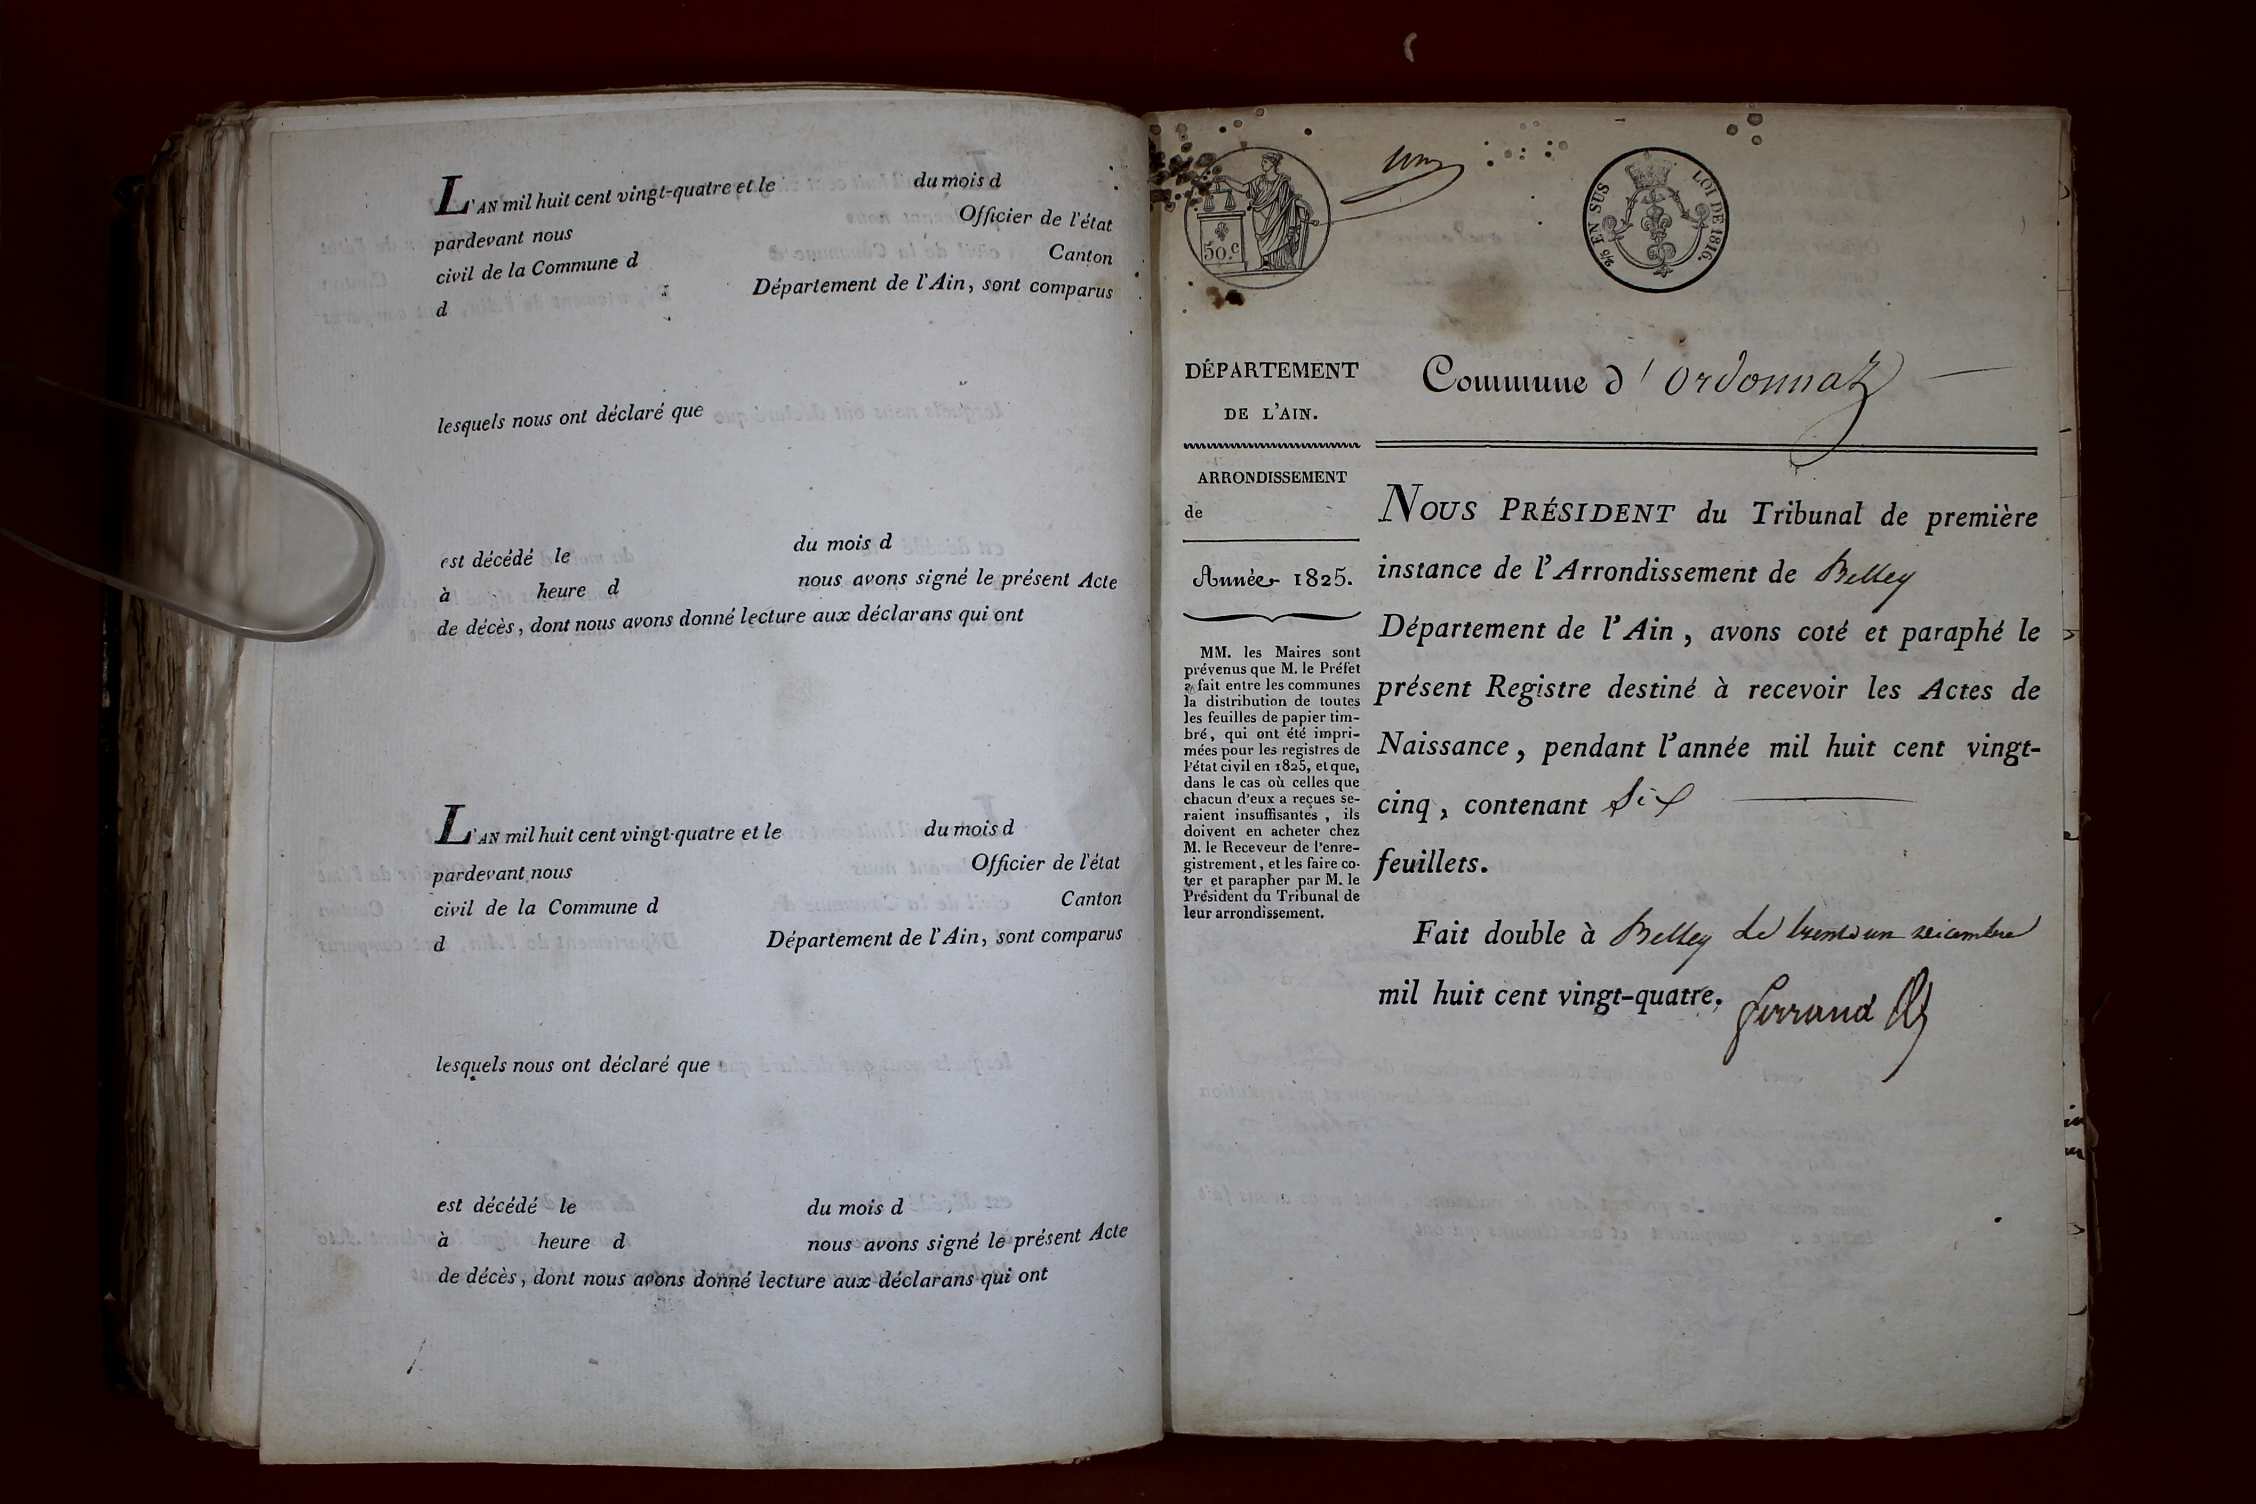 L'AN mil huit cent vingt-quatre et le du mois d
pardevant nous Officier de l'état
civil de la Commune d Canton
d Département de l'Ain, sont comparus
lesquels nous ont déclaré que
est décédé le du mois d
à heure d nous avons signé le présent Acte
de décès, dont nous avons donné lecture aux déclarans qui ont
L'AN mil huit cent vingt-quatre et le du mois d
pardevant nous Officier de l'état
civil de la Commune d Canton
d Département de l'Ain, sont comparus
lesquels nous ont déclaré que
est décédé le du mois d
à heure d nous avons signé le présent Acte
de décès, dont nous avons donné lecture aux déclarans qui ont
50.c
un
EN SUS LOI DE 1816.
DÉPARTEMENT
DE L'AIN.
ARRONDISSEMENT
de
Année 1825.
MM. les Maires sont
prévenus que M. le Préfet
a fait entre les communes
la distribution de toutes
les feuilles de papier tim-
bré, qui ont été impri-
mées pour les registres de
l'état civil en 1825, et que,
dans le cas où celles que
chacun d'eux a reçues se-
raient insuffisantes, ils
doivent en acheter chez
M. le Receveur de l'enre-
gistrement, et les faire co-
ter et parapher par M. le
Président du Tribunal de
leur arrondissement.
Commune d'Ordonnaz
NOUS PRÉSIDENT du Tribunal de première
instance de l'Arrondissement de Belley
Département de l'Ain, avons coté et paraphé le
présent Registre destiné à recevoir les Actes de
Naissance, pendant l'année mil huit cent vingt-
cinq, contenant Six
feuillets.
Fait double à Belley le trente un décembre
mil huit cent vingt-quatre.
Ferrand